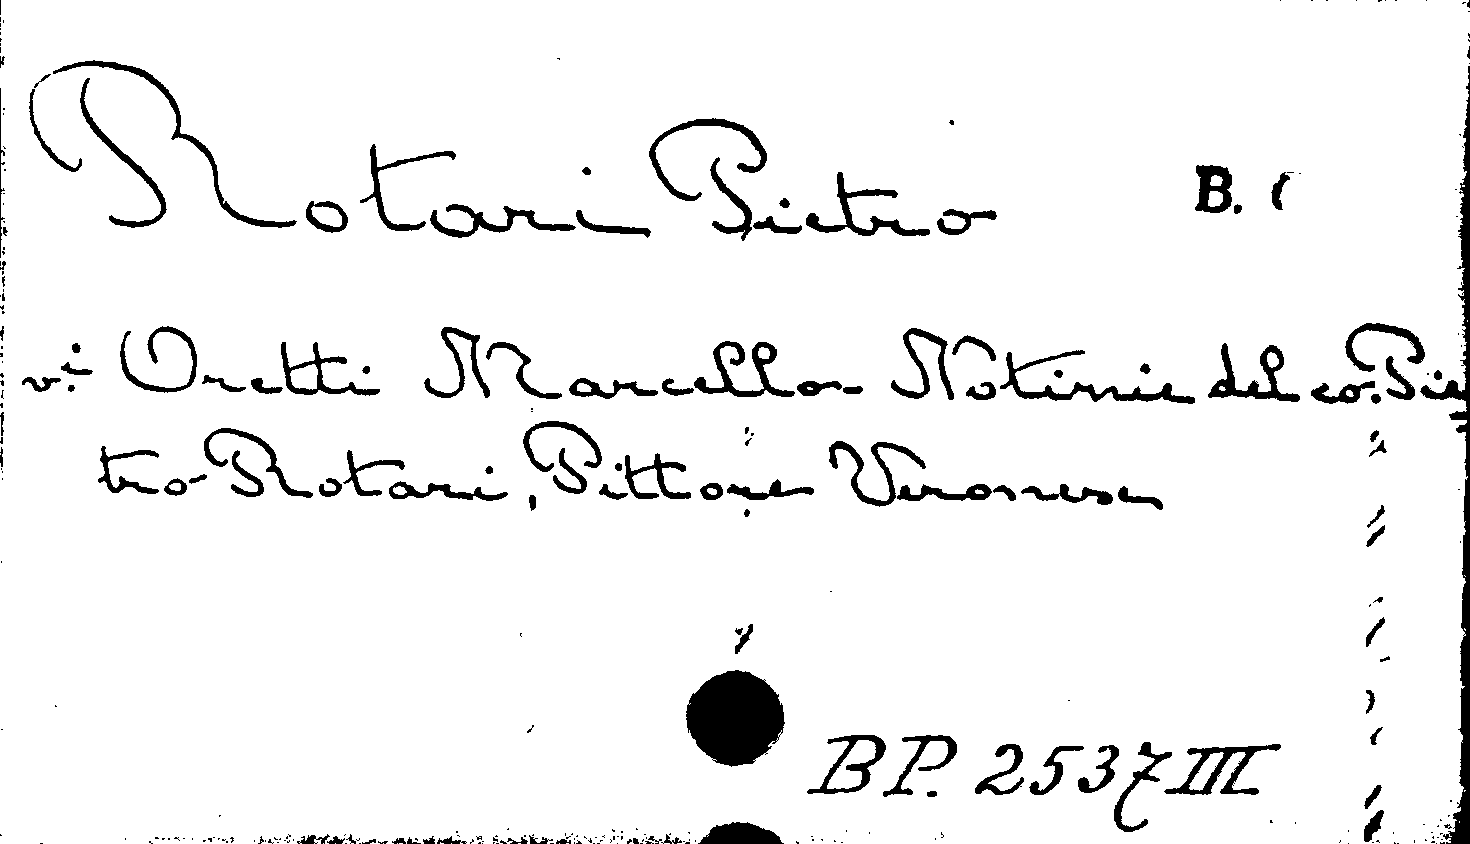 Rotari Pietro B.
vi: Oretti Marcello Notizie del co. Pie=
tro Rotari, Pittore Veronese
BP. 2537 III